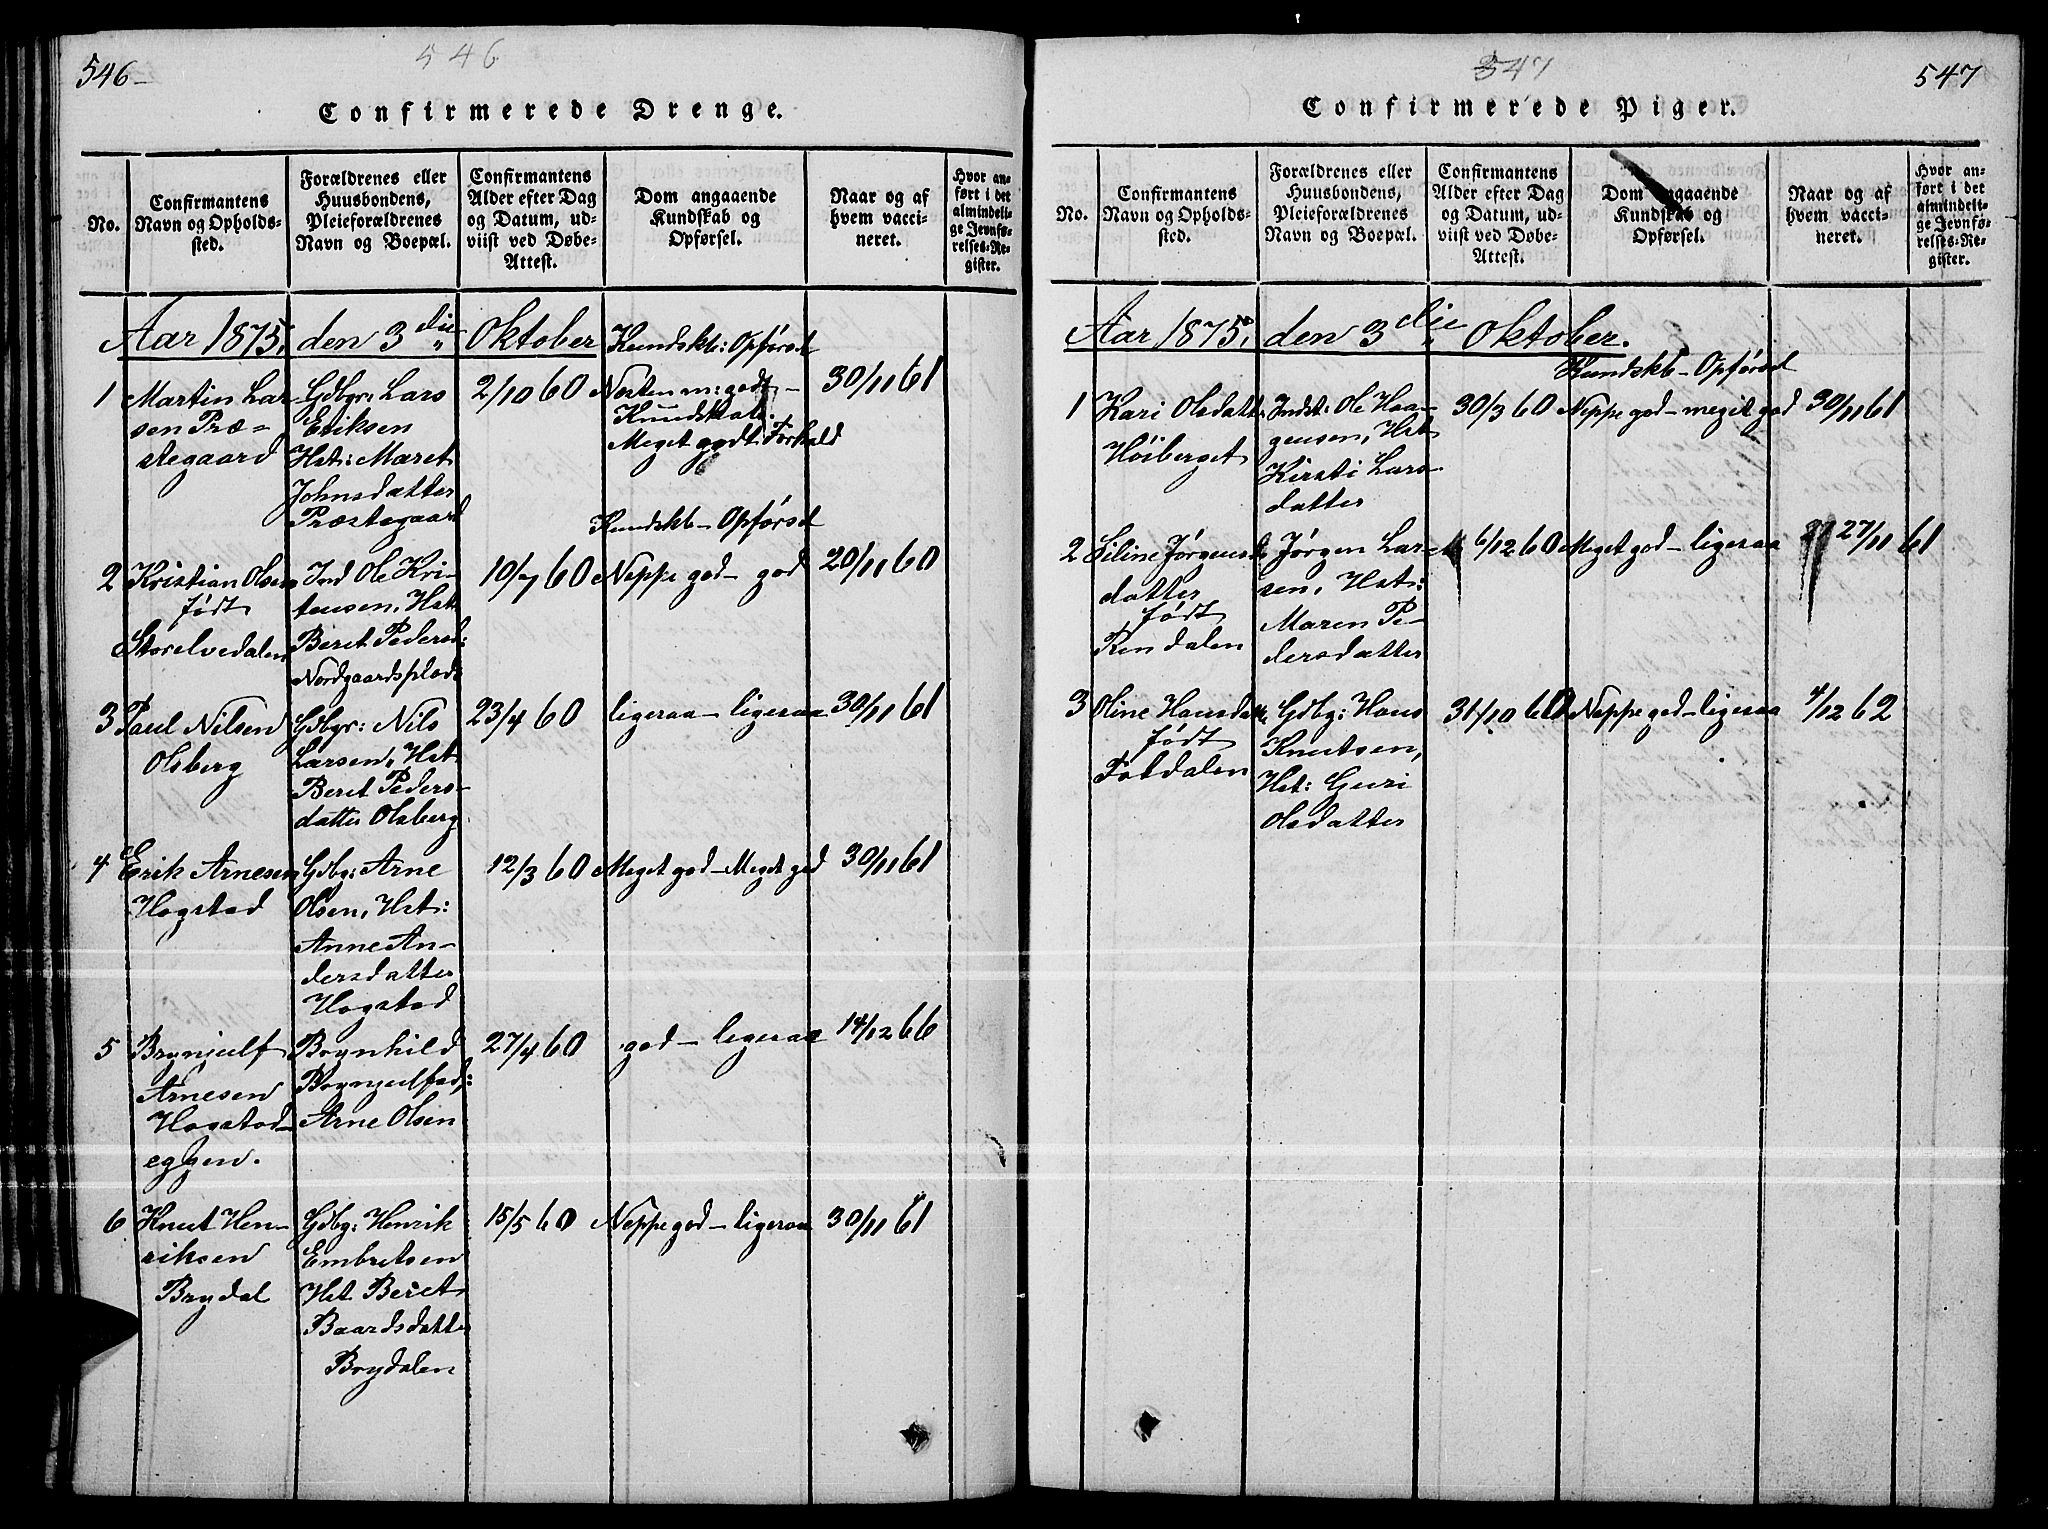 546
546
Confirmerede Drenge.
No.
Confirmantens
Navn og Opholds-
sted.
Forældrenes eller
Huusbondens,
Pleieforældrenes
Navn og Boepæl.
Confirmantens
Alder efter Dag
og Datum, ud-
viist ved Døbe-
Attest.
Dom angaaende
Kundskab og
Opførsel.
Naar og af
hvem vacci-
neret.
Hvor an-
ført i det
almindeli-
ge Jevnfø-
relses-Re-
gister.
Aar 1875, den 3die Oktober
Kundskb: Opførsel
1
Martin Lar-
sen Præ-
stegaard
Gdbgr: Lars
Eriksen
Hst: Maret
Johnsdatter
Præstegaard
2/10 60
Nesten m: godt -
Kundskab.
Meget godt Forhold
30/11 61
Kundskb - Opførsel
2
Kristian Olsen
født
Storelvedalen
Ind Ole Kri-
stensen, Hst
Beret Pedersd:
Nordgaardsplads
10/7 60
Neppe god - god
20/11 60
3
Paul Nilsen
Olsberg
Gdbgr: Nils
Larsen, Hst
Beret Peders-
datter Olsberg
23/4 60
ligesaa - ligesaa
30/11 61
4
Erik Arnesen
Hogstad
Gdbg: Arne
Olsen, Hst:
Anne An-
dersdatter
Hogstad
12/3 60
Meget god - Meget god
30/11 61
5
Brynjulf
Arnesen
Hogstad-
eggen.
Brynhild
Brynjulfsd:
Arne Olsen
27/4 60
god - ligesaa
14/12 66
6
Knut Hen-
riksen
Brydal
Gdbg: Henrik
Embretsen
Hst Beret
Baardsdatter
Brydalen
15/5 60
Neppe god - ligesaa
30/11 61
547
547
Confirmerede Piger.
No.
Confirmantens
Navn og Opholds-
sted.
Forældrenes eller
Huusbondens,
Pleieforældrenes
Navn og Boepæl.
Confirmantens
Alder efter Dag
og Datum, ud-
viist ved Døbe-
Attest.
Dom angaaende
Kundskab og
Opførsel.
Naar og af
hvem vacci-
neret.
Hvor an-
ført i det
almindeli-
ge Jevnfø-
relses-Re-
gister.
Aar 1875, den 3die Oktober.
Kundskb - Opførsel
1
Kari Olsdatter
Høiberget
Indst: Ole Haa-
gensen, Hst
Kirsti Lars-
datter
30/3 60
Neppe god - meget god
30/11 61
2
Siline Jørgens-
datter
født
Rendalen
Jørgen Lar-
sen, Hst:
Maren Pe-
dersdatter
6/12 60
Meget god - ligesaa
27/11 61
3
Oline Hansdatter
født
Foldalen
Gdbg: Hans
Knutsen,
Hst: Guri
Olsdatter
31/10 60
Neppe god - ligesaa
4/12 62